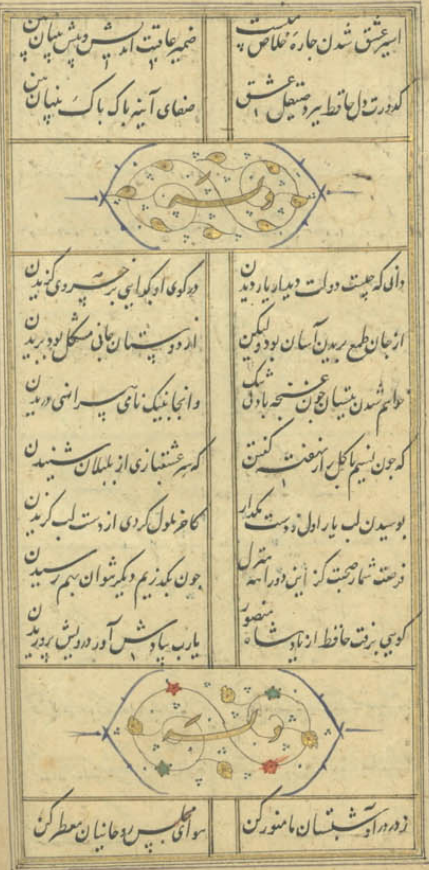 اسیر عشق شدن چارهٔ خلاص منست ضمیر عاقبت اندیش پیش بینان بین
کدورت دل حافظ ببرد صیقل عشق صفای آینهٔ پاک پاک بینان بین
وله
دانی که چیست دولت دیدار یار دیدن در کوی او گدایی بر خسروی گزیدن
از جان طمع بریدن آسان بود ولیکن از دوستان جانی مشکل بود بریدن
خواهم شدن ببستان چون غنچه با دل تنگ وانجا بنیک نامی پیراهنی دریدن
که چون نسیم با گل راز نهفته گفتن که سر عشقبازی از بلبلان شنیدن
بوسیدن لب یار اول ز دست مگذار کاخر ملول گردی از دست لب گزیدن
فرصت شمار صحبت کز این دو راهه منزل چون بگذریم دیگر نتوان بهم رسیدن
گویی برفت حافظ از یاد شاه منصور یارب بیادش آور درویش پروریدن
وله
ز در درآ و شبستان ما منور کن هوای مجلس روحانیان معطر کن